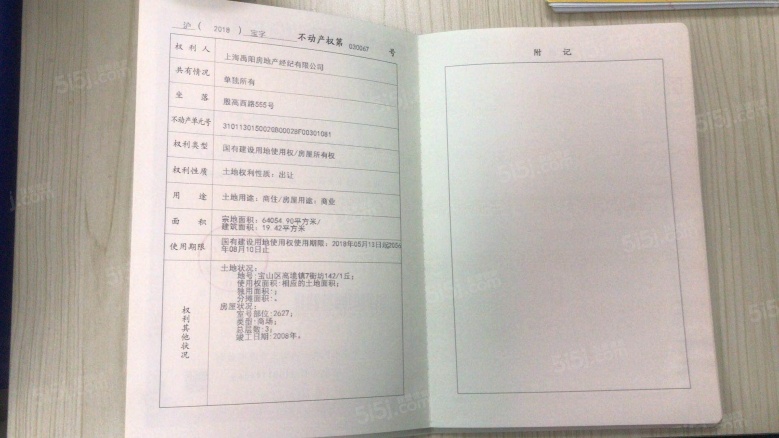 沪( 2018 )宝字 不动产权第 030067 号
权利人 上海禹阳房地产经纪有限公司
共有情况 单独所有
坐落 殷高西路555号
不动产单元号 310113015002GB00028F00301081
权利类型 国有建设用地使用权/房屋所有权
权利性质 土地权利性质:出让
用途 土地用途:商住/房屋用途:商业
面积 宗地面积:64054.90平方米/
建筑面积:19.42平方米
使用期限 国有建设用地使用权使用期限:2018年05月13日起2056
年08月10日止
权利其他状况
土地状况:
地号:宝山区高境镇7街坊142/1丘;
使用权面积:相应的土地面积;
独用面积:;
分摊面积:。
房屋状况:
室号部位:2627;
类型:商场;
总层数:3;
竣工日期:2008年。
附记
5i5j.com